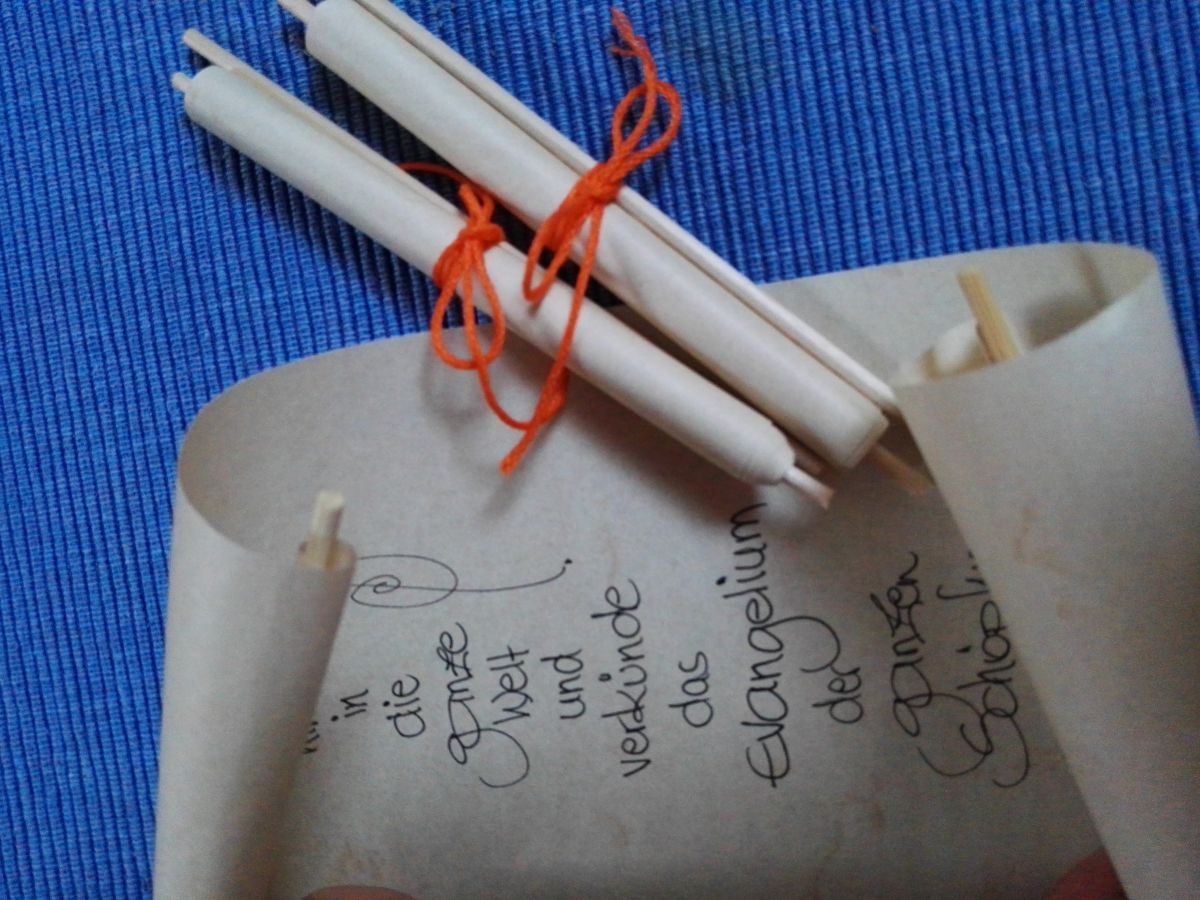 in
die
ganze
Welt
und
verkünde
das
Evangelium
der
ganzen